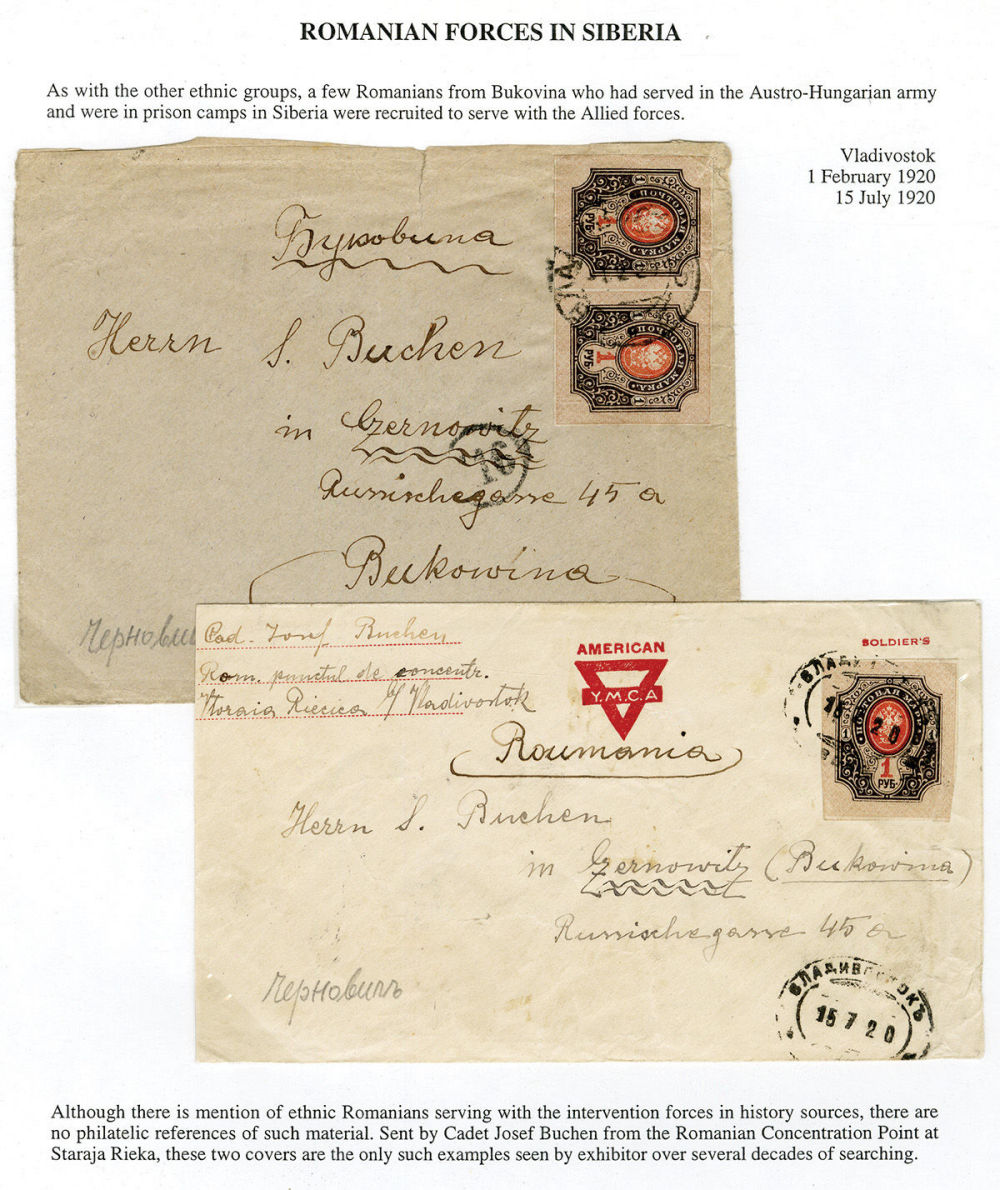 ROMANIAN FORCES IN SIBERIA
As with the other ethnic groups, a few Romanians from Bukovina who had served in the Austro-Hungarian army
and were in prison camps in Siberia were recruited to serve with the Allied forces.
Vladivostok
1 February 1920
15 July 1920
Буковина
Herrn S. Buchen
in Czernowitz
Russischegasse 45 a
Bukowina
ПОЧТОВАЯ МАРКА
1 РУБ
ПОЧТОВАЯ МАРКА
1 РУБ
16
Cad. Josef Buchen
Rom. punctul de concentr.
Vladivostok
AMERICAN
Y.M.C.A
SOLDIER'S
Roumania
ПОЧТОВАЯ МАРКА
1
РУБ
Herrn S. Buchen
in Czernowitz (Bukowina)
Russischegasse 45 a
Черновичъ
ВЛАДИВОСТОКЪ
15 7 20
Although there is mention of ethnic Romanians serving with the intervention forces in history sources, there are
no philatelic references of such material. Sent by Cadet Josef Buchen from the Romanian Concentration Point at
Staraja Rieka, these two covers are the only such examples seen by exhibitor over several decades of searching.